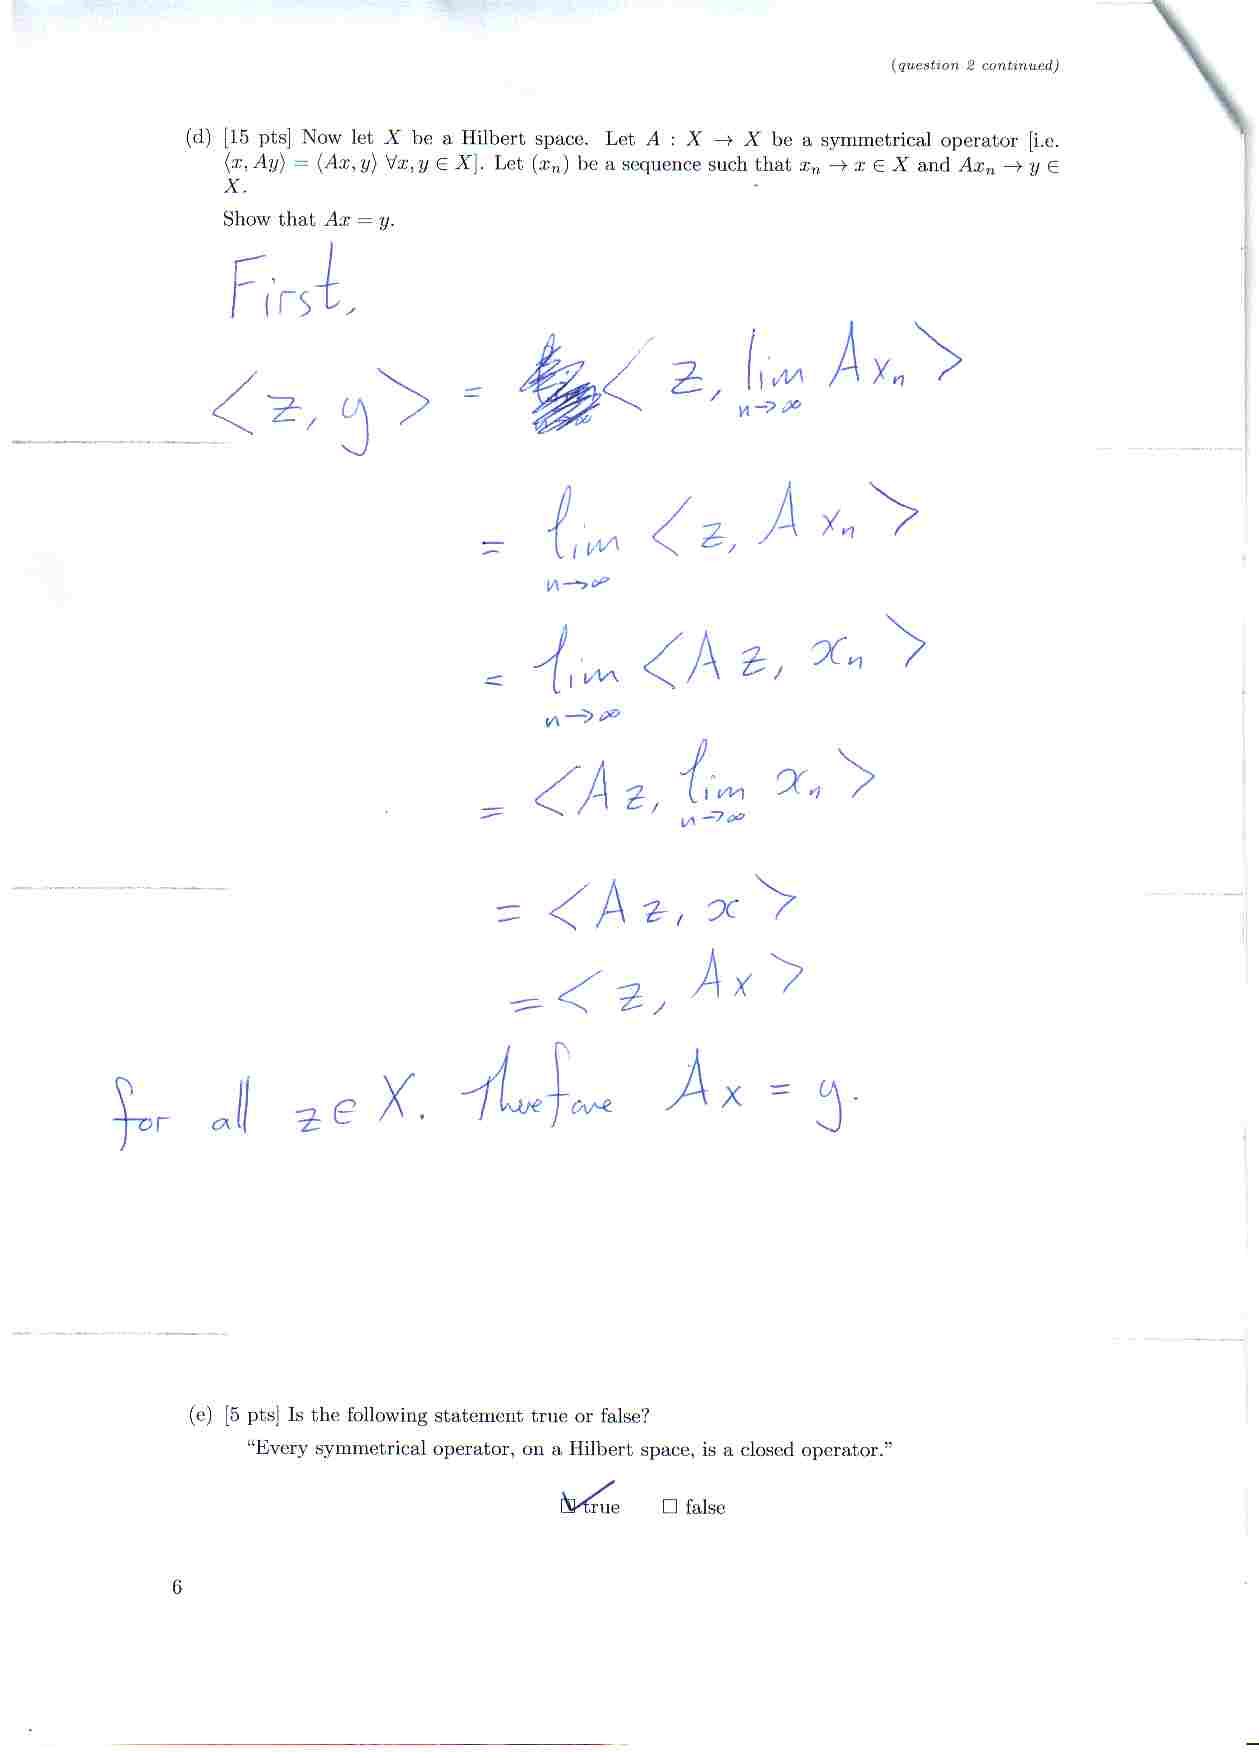 (question 2 continued)
(d) [15 pts] Now let X be a Hilbert space. Let A : X → X be a symmetrical operator [i.e.
⟨x, Ay⟩ = ⟨Ax, y⟩ ∀x, y ∈ X]. Let (xₙ) be a sequence such that xₙ → x ∈ X and Axₙ → y ∈
X.
Show that Ax = y.
First,
<z, y> = <z, lim Axₙ>
n→∞
= lim <z, Axₙ>
n→∞
= lim <Az, xₙ>
n→∞
= <Az, lim xₙ>
n→∞
= <Az, x>
= <z, Ax>
for all z ∈ X. Therefore Ax = y.
(e) [5 pts] Is the following statement true or false?
“Every symmetrical operator, on a Hilbert space, is a closed operator.”
☑ true ☐ false
6